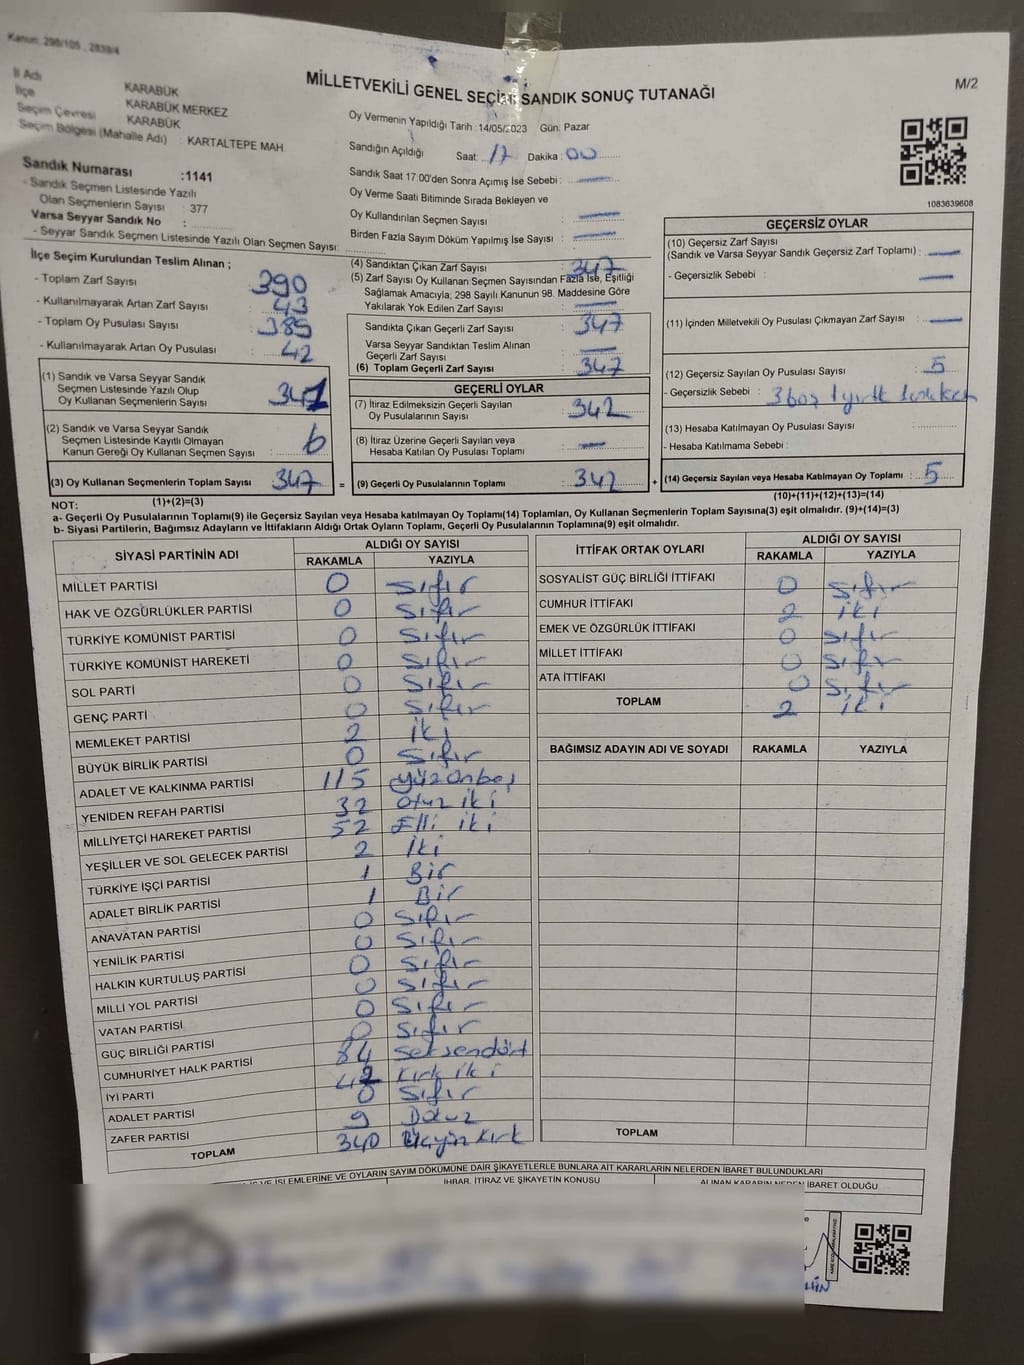 Kanun: 298/105 , 2839/4
MİLLETVEKİLİ GENEL SEÇİMİ SANDIK SONUÇ TUTANAĞI
M/2
İl Adı KARABÜK
İlçe KARABÜK MERKEZ
Seçim Çevresi KARABÜK
Seçim Bölgesi (Mahalle Adı) : KARTALTEPE MAH.
Sandık Numarası :1141
- Sandık Seçmen Listesinde Yazılı
Olan Seçmenlerin Sayısı : 377
Varsa Seyyar Sandık No :
- Seyyar Sandık Seçmen Listesinde Yazılı Olan Seçmen Sayısı:
Oy Vermenin Yapıldığı Tarih : 14/05/2023 Gün: Pazar
Sandığın Açıldığı Saat: 17 Dakika : 00
Sandık Saat 17:00'den Sonra Açımış İse Sebebi : —
Oy Verme Saati Bitiminde Sırada Bekleyen ve
Oy Kullandırılan Seçmen Sayısı : —
Birden Fazla Sayım Döküm Yapılmış İse Sayısı : —
1083639608
İlçe Seçim Kurulundan Teslim Alınan ;
- Toplam Zarf Sayısı : 390
- Kullanılmayarak Artan Zarf Sayısı : 43
- Toplam Oy Pusulası Sayısı : 389
- Kullanılmayarak Artan Oy Pusulası : 42
(1) Sandık ve Varsa Seyyar Sandık
Seçmen Listesinde Yazılı Olup
Oy Kullanan Seçmenlerin Sayısı : 341
(2) Sandık ve Varsa Seyyar Sandık
Seçmen Listesinde Kayıtlı Olmayan
Kanun Gereği Oy Kullanan Seçmen Sayısı : 6
(3) Oy Kullanan Seçmenlerin Toplam Sayısı : 347 =
(1)+(2)=(3)
(4) Sandıktan Çıkan Zarf Sayısı : 347
(5) Zarf Sayısı Oy Kullanan Seçmen Sayısından Fazla İse, Eşitliği
Sağlamak Amacıyla; 298 Sayılı Kanunun 98. Maddesine Göre
Yakılarak Yok Edilen Zarf Sayısı : —
Sandıkta Çıkan Geçerli Zarf Sayısı : 347
Varsa Seyyar Sandıktan Teslim Alınan
Geçerli Zarf Sayısı : —
(6) Toplam Geçerli Zarf Sayısı : 347
GEÇERLİ OYLAR
(7) İtiraz Edilmeksizin Geçerli Sayılan
Oy Pusulalarının Sayısı : 342
(8) İtiraz Üzerine Geçerli Sayılan veya
Hesaba Katılan Oy Pusulası Toplamı : —
(9) Geçerli Oy Pusulalarının Toplamı : 342 +
GEÇERSİZ OYLAR
(10) Geçersiz Zarf Sayısı
(Sandık ve Varsa Seyyar Sandık Geçersiz Zarf Toplamı) : —
- Geçersizlik Sebebi : —
(11) İçinden Milletvekili Oy Pusulası Çıkmayan Zarf Sayısı : —
(12) Geçersiz Sayılan Oy Pusulası Sayısı : 5
- Geçersizlik Sebebi : 3 boş 1 yırtık
(13) Hesaba Katılmayan Oy Pusulası Sayısı :
- Hesaba Katılmama Sebebi :
(14) Geçersiz Sayılan veya Hesaba Katılmayan Oy Toplamı : 5
(10)+(11)+(12)+(13)=(14)
NOT:
a- Geçerli Oy Pusulalarının Toplamı(9) ile Geçersiz Sayılan veya Hesaba katılmayan Oy Toplamı(14) Toplamları, Oy Kullanan Seçmenlerin Toplam Sayısına(3) eşit olmalıdır. (9)+(14)=(3)
b- Siyasi Partilerin, Bağımsız Adayların ve İttifakların Aldığı Ortak Oyların Toplamı, Geçerli Oy Pusulalarının Toplamına(9) eşit olmalıdır.
SİYASİ PARTİNİN ADI ALDIĞI OY SAYISI
RAKAMLA YAZIYLA
MİLLET PARTİSİ 0 sıfır
HAK VE ÖZGÜRLÜKLER PARTİSİ 0 sıfır
TÜRKİYE KOMÜNİST PARTİSİ 0 sıfır
TÜRKİYE KOMÜNİST HAREKETİ 0 sıfır
SOL PARTİ 0 sıfır
GENÇ PARTİ 0 sıfır
MEMLEKET PARTİSİ 2 iki
BÜYÜK BİRLİK PARTİSİ 0 sıfır
ADALET VE KALKINMA PARTİSİ 115 yüzonbeş
YENİDEN REFAH PARTİSİ 32 otuz iki
MİLLİYETÇİ HAREKET PARTİSİ 52 Elli iki
YEŞİLLER VE SOL GELECEK PARTİSİ 2 İki
TÜRKİYE İŞÇİ PARTİSİ 1 Bir
ADALET BİRLİK PARTİSİ 1 Bir
ANAVATAN PARTİSİ 0 sıfır
YENİLİK PARTİSİ 0 sıfır
HALKIN KURTULUŞ PARTİSİ 0 sıfır
MİLLİ YOL PARTİSİ 0 sıfır
VATAN PARTİSİ 0 sıfır
GÜÇ BİRLİĞİ PARTİSİ 0 sıfır
CUMHURİYET HALK PARTİSİ 84 seksendört
İYİ PARTİ 42 kırk iki
ADALET PARTİSİ 0 sıfır
ZAFER PARTİSİ 9 Dokuz
TOPLAM 340 üçyüz kırk
İTTİFAK ORTAK OYLARI ALDIĞI OY SAYISI
RAKAMLA YAZIYLA
SOSYALİST GÜÇ BİRLİĞİ İTTİFAKI 0 sıfır
CUMHUR İTTİFAKI 2 iki
EMEK VE ÖZGÜRLÜK İTTİFAKI 0 sıfır
MİLLET İTTİFAKI 0 sıfır
ATA İTTİFAKI 0 sıfır
TOPLAM 2 iki
BAĞIMSIZ ADAYIN ADI VE SOYADI RAKAMLA YAZIYLA
TOPLAM
İŞLEMLERİNE VE OYLARIN SAYIM DÖKÜMÜNE DAİR ŞİKAYETLERLE BUNLARA AİT KARARLARIN NELERDEN İBARET BULUNDUKLARI
İHBAR, İTİRAZ VE ŞİKAYETİN KONUSU
ALINAN KARARIN NEDEN İBARET OLDUĞU